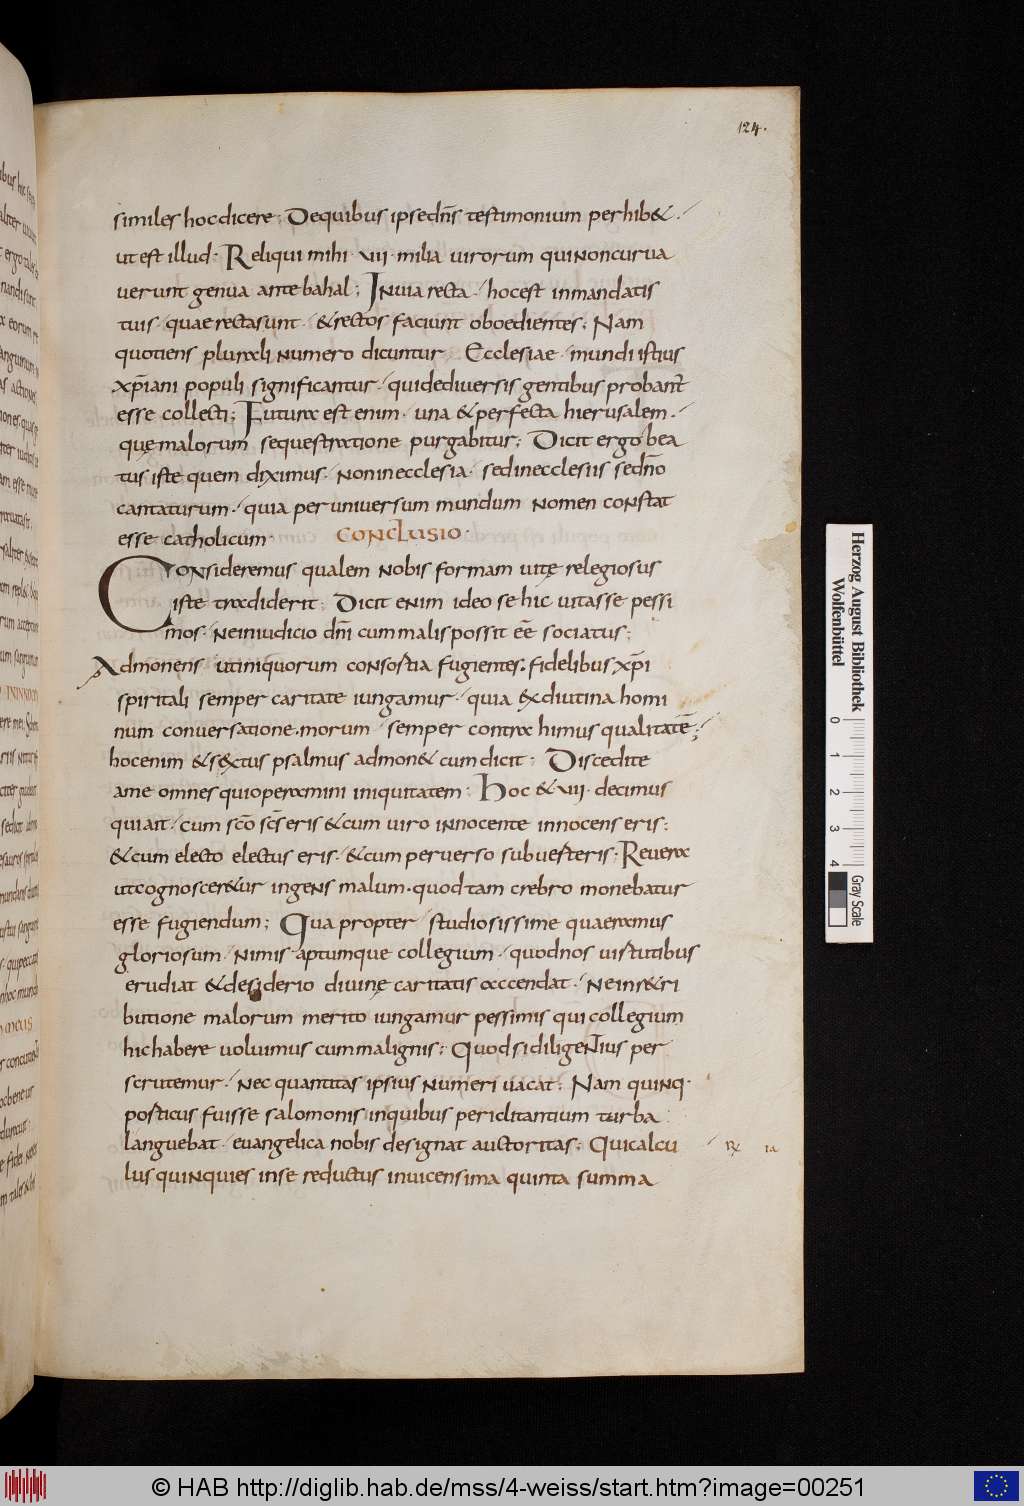 124.
similes hocdicere; Dequibus ipsedn̄s testimonium perhib&.
ut est illud. Reliqui mihi .VII. milia uirorum quinoncurua
uerunt genua ante bahal; Inuia recta. hocest inmandatis
tuis. quaerectasunt. &rectos faciunt oboedientes; Nam
quotiens plurali numero dicuntur. Ecclesiae. mundi istius
xp̄iani populi significantur. quidediuersis gentibus probant̄
esse collecti; Futura est enim. una &perfecta hierusalem.
quęmalorum sequestratione purgabitur; Dicit ergo bea
tus iste quem diximus. noninecclesia. sedinecclesiis sedn̄o
cantaturum. quia peruniuersum mundum nomen constat
esse catholicum.
CONCLUSIO.
Consideremus qualem nobis formam uitę relegiosus
iste tradiderit; Dicit enim ideo se hic uitasse pessi
mos. neiniudicio dn̄i cummalispossit eē sociatus;
Admonens utiniquorum consortia fugientes. fidelibus xp̄i
spiritali semper caritate iungamur. quia exdiutina homi
num conuersatione.morum semper contra himus qualitatē;
hocenim &sextus psalmus admon& cumdicit; Discedite
ame omnes quioperamini iniquitatem; Hoc &XVII. decimus
quiait. cum sc̄o sc̄s eris &cum uiro innocente innocens eris;
&cum electo electus eris. &cum peruerso subuerteris; Reuera
utcognoscer&ur ingens malum.quod tam crebro monebatur
esse fugiendum; Qua propter studiosissime quaeramus
gloriosum. nimis aptumque collegium. quodnos uirtutibus
erudiat &desiderio diuinę caritatis accendat. neinr&ri
butione malorum merito iungamur pessimis qui collegium
hichabere uoluimus cummalignis; Quodsidiligentius per
scrutemur. nec quantitas ipsius numeri uacat; Nam quinq.
posticus fuisse salomonis inquibus periclitantium turba
languebat. euangelica nobis designat auctoritas; Quicalcu
lus quinquies inse reductus inuicensima quinta summa
Herzog August Bibliothek
Wolfenbüttel
0 1 2 3 4
Gray Scale
© HAB http://diglib.hab.de/mss/4-weiss/start.htm?image=00251